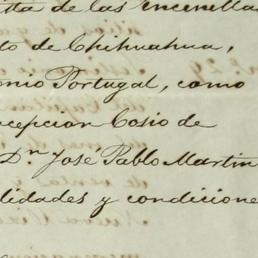 tta de las encenillas
to de Chihuahua,
onio Portugal, como
cepcion Cosio de
Dn Jose Pablo Martin
lidades y condicione